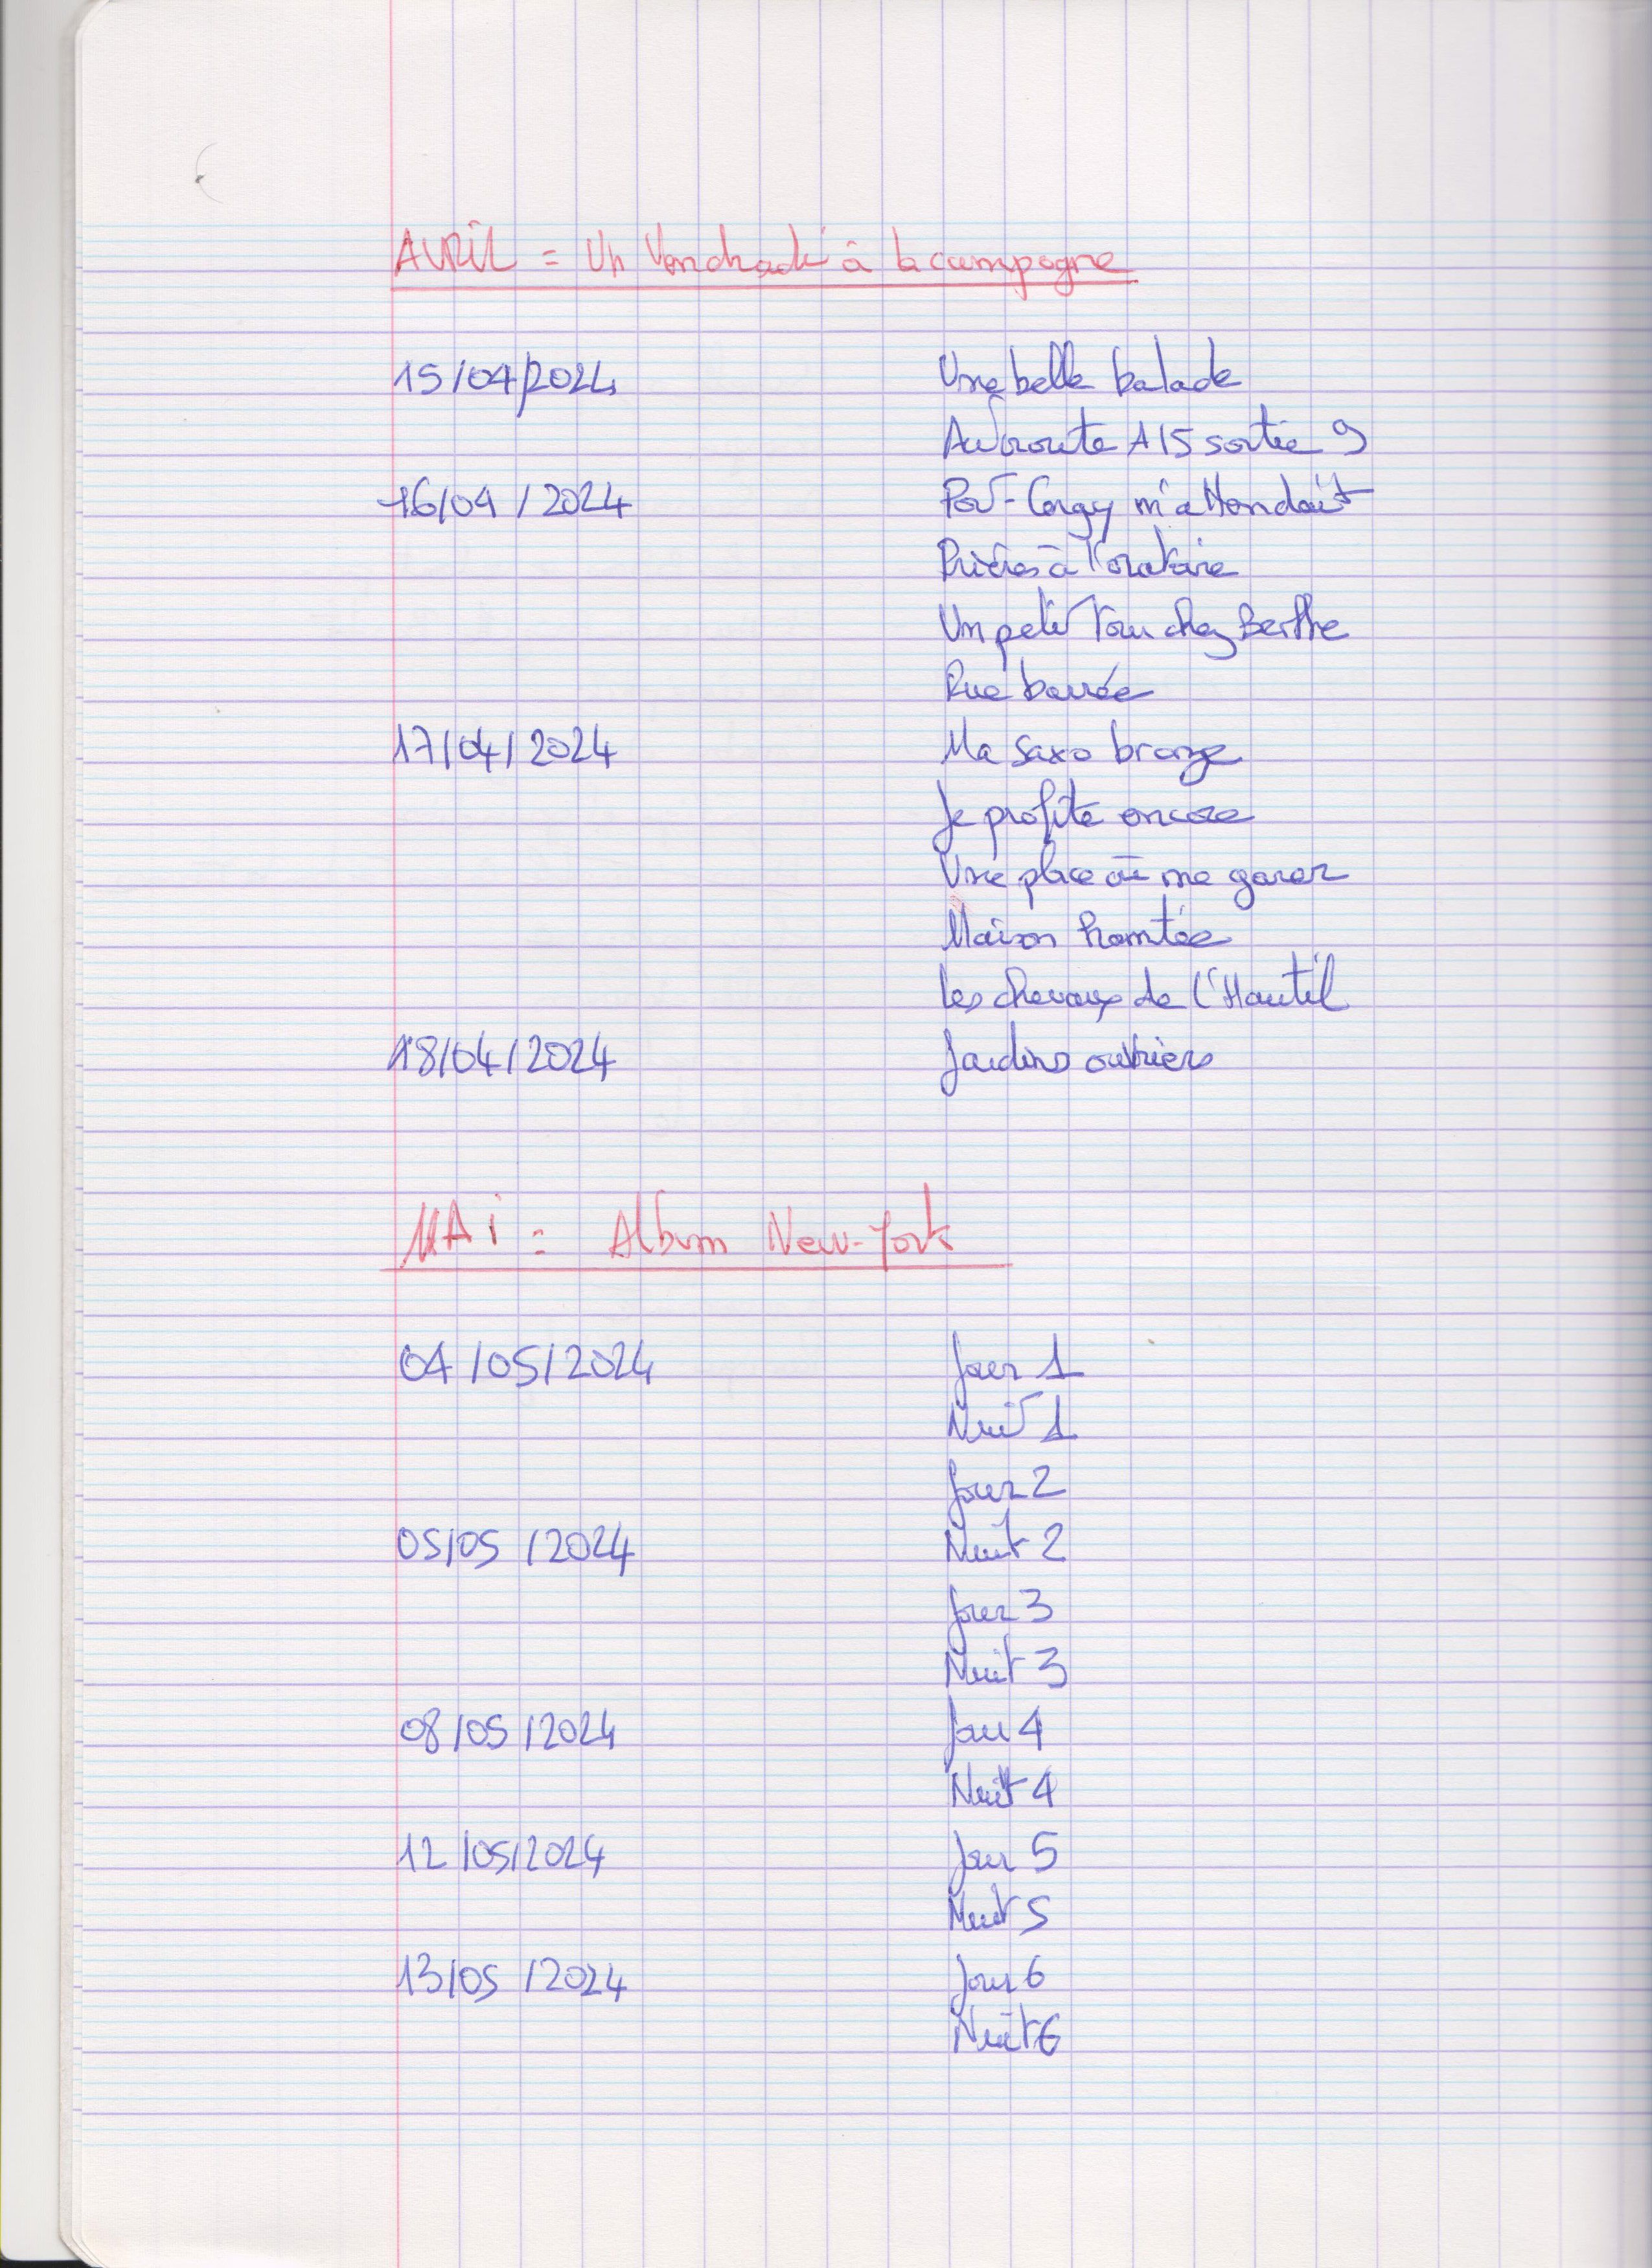 AVRIL = Un Vendredi à la campagne
15/04/2024 Une belle balade
Autoroute A15 sortie 9
16/04/2024 Port-Cergy m'attendait
Prières à l'oratoire
Un petit tour chez Berthe
Rue barrée
17/04/2024 Ma saxo bronze
Je profite encore
Une place où me garer
Maison hantée
Les chevaux de l'Hautil
18/04/2024 Jardins ouvriers
MAI : Album New-York
04/05/2024 Jour 1
Nuit 1
Jour 2
05/05/2024 Nuit 2
Jour 3
Nuit 3
08/05/2024 Jour 4
Nuit 4
12/05/2024 Jour 5
Nuit 5
13/05/2024 Jour 6
Nuit 6